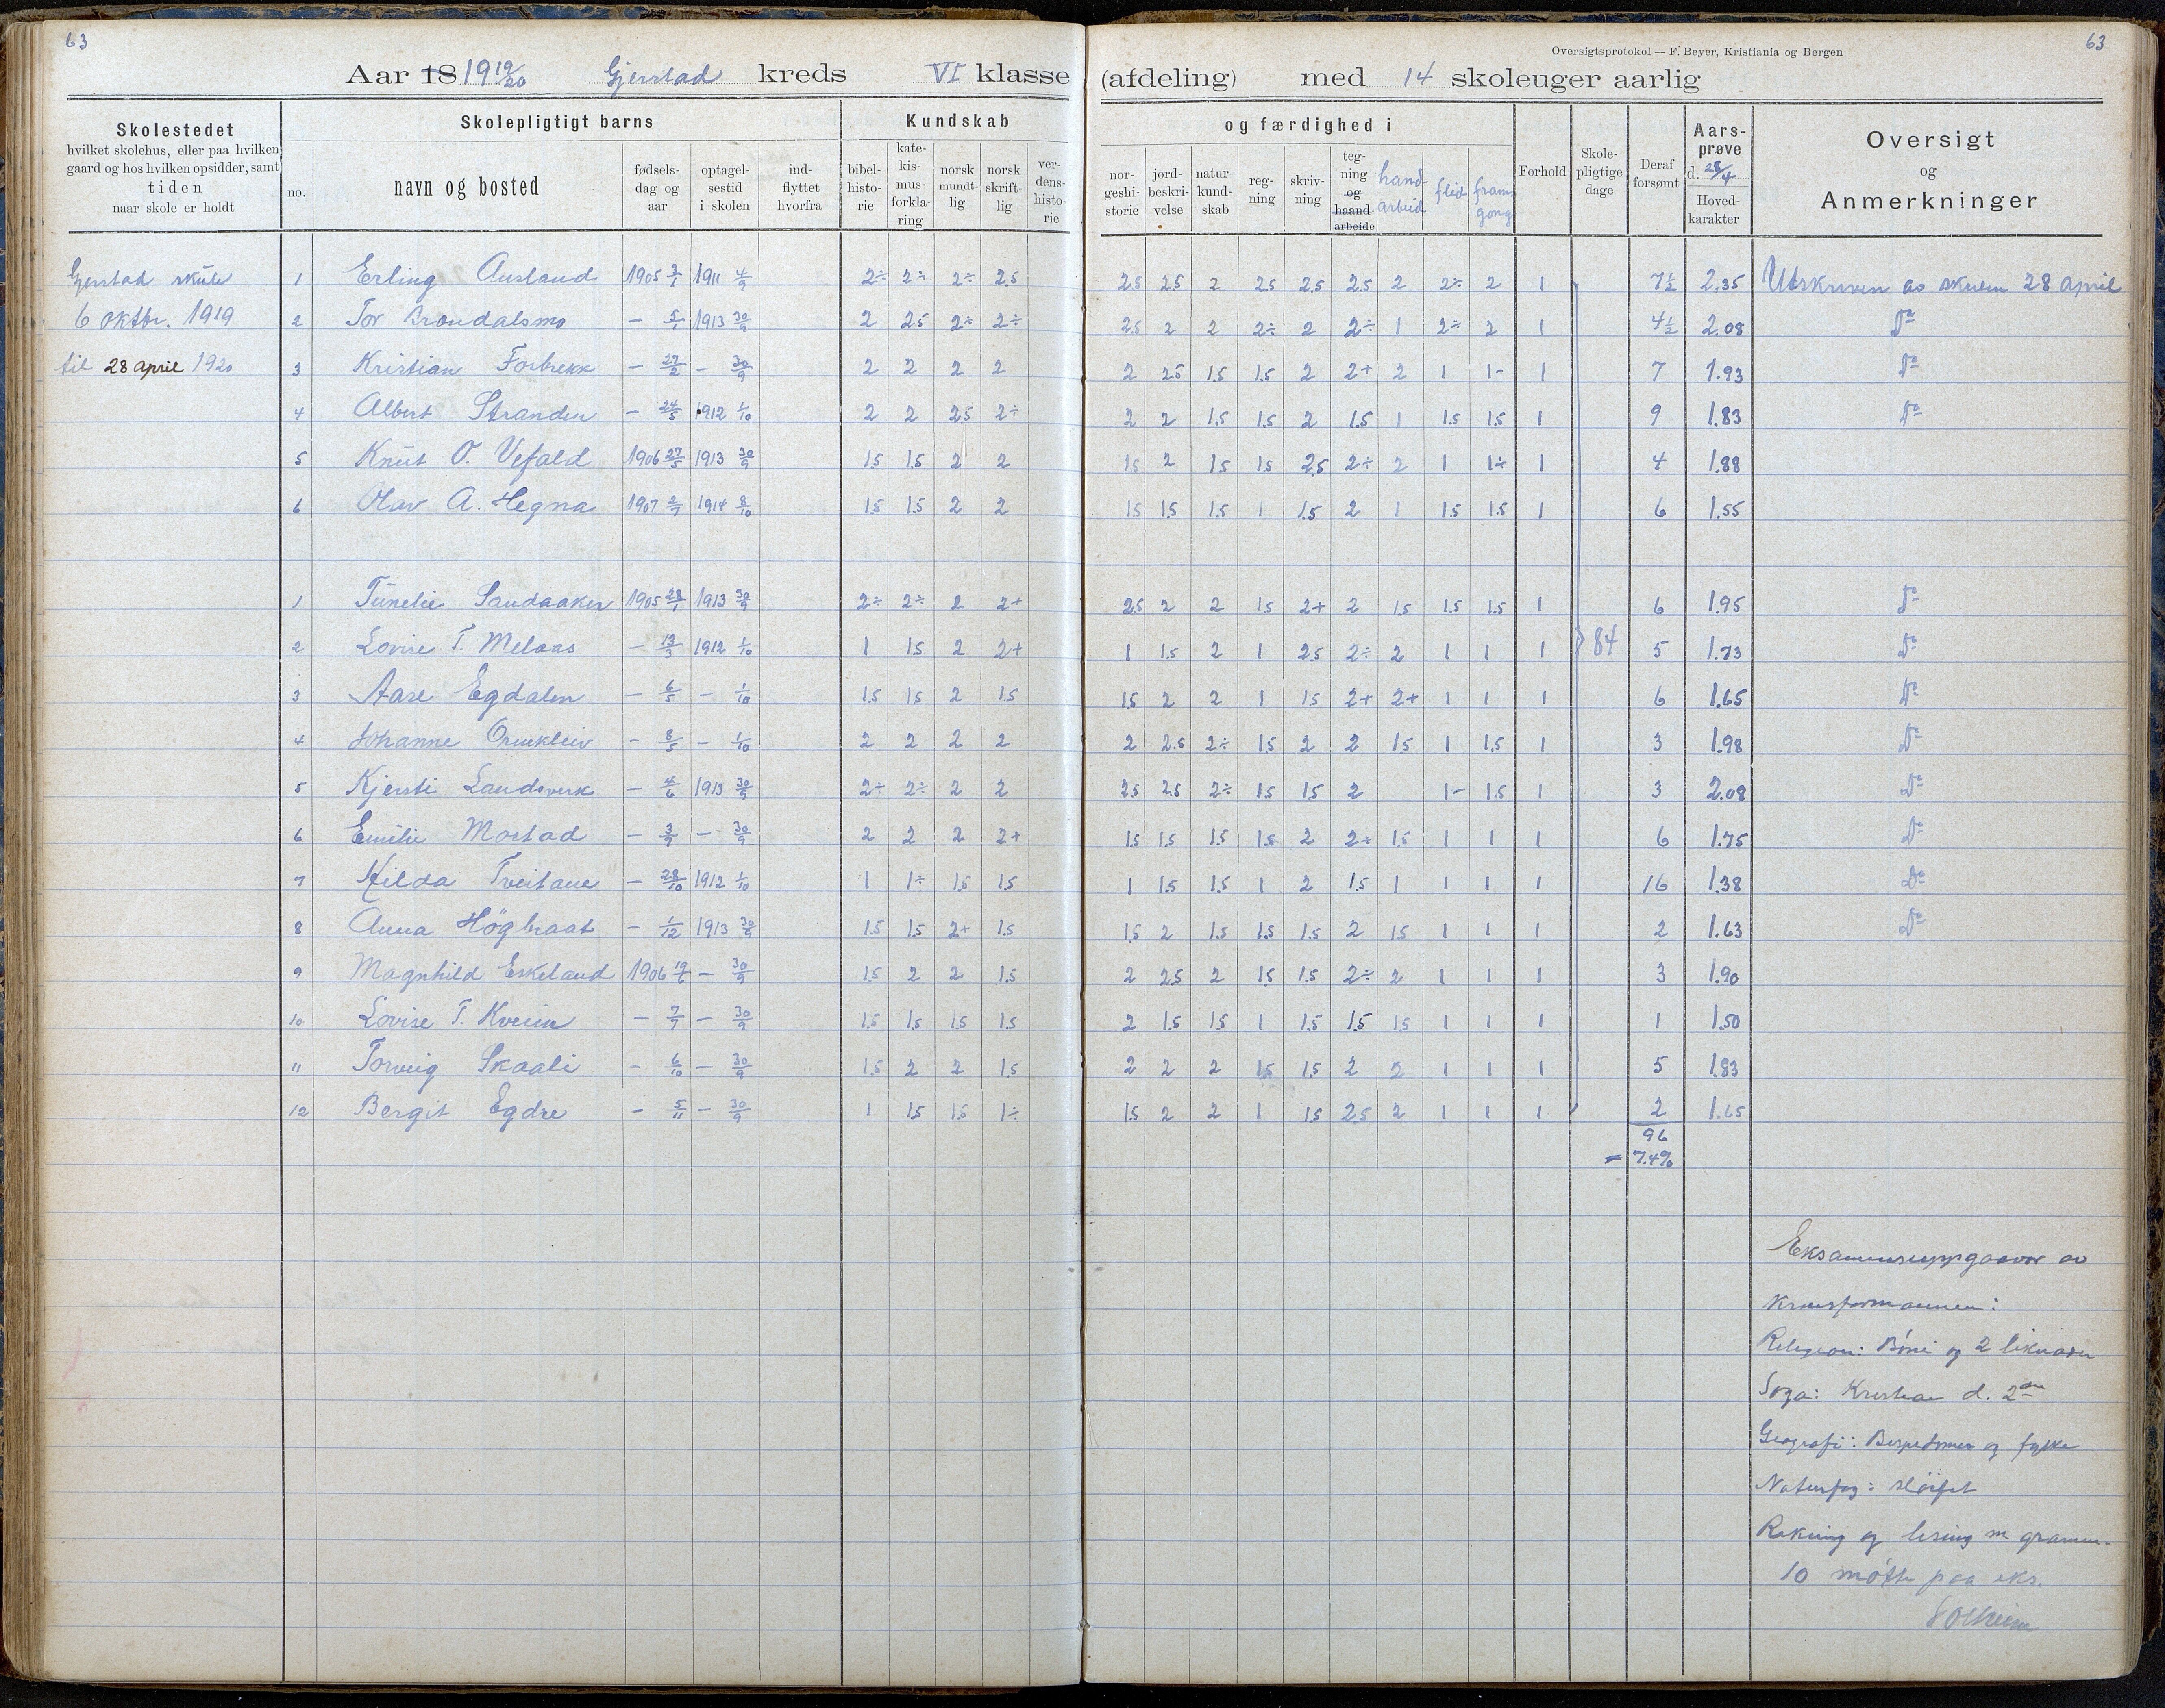 63
Oversigtsprotokol — F. Beyer, Kristiania og Bergen
63
Aar 18 1919/20 Gjerstad kreds VI klasse (afdeling) med 14 skoleuger aarlig
Skolestedet
hvilket skolehus, eller paa hvilken
gaard og hos hvilken opsidder, samt
tiden
naar skole er holdt
Skolepligtigt barns
no.
navn og bosted
fødsels-
dag og
aar
optagel-
sestid
i skolen
ind-
flyttet
hvorfra
Kundskab og færdighed i
bibel-
histo-
rie
kate-
kis-
mus-
forkla-
ring
norsk
mundt-
lig
norsk
skrift-
lig
ver-
dens-
histo-
rie
nor-
geshi-
storie
jord-
beskri-
velse
natur-
kund-
skab
reg-
ning
skriv-
ning
teg-
ning
og
haand-
arbeide
hand-
arbeid
flid
fram
gong
Forhold
Skole-
pligtige
dage
Deraf
forsømt
Aars-
prøve
d. 28/4
Hoved-
karakter
Oversigt
og
Anmerkninger
Gjerstad skule
6 oktbr. 1919
til 28 april 1920
1 Erling Ausland 1905 3/1 1911 4/9 2÷ 2÷ 2÷ 2.5 2.5 2.5 2 2.5 2.5 2.5 2 2÷ 2 1 7½ 2.35 Utskriven av skulen 28 april
2 Tor Brøndalsmo — 5/1 1913 30/9 2 2.5 2÷ 2÷ 2.5 2 2 2÷ 2 2÷ 1 2÷ 2 1 4½ 2.08 Do
3 Kristian Forbrekk — 27/2 — 30/9 2 2 2 2 2 2.5 1.5 1.5 2 2+ 2 1 1- 1 7 1.93 Do
4 Albert Stranden — 24/5 1912 1/10 2 2 2.5 2÷ 2 2 1.5 1.5 2 1.5 1 1.5 1.5 1 9 1.83 Do
5 Knut O. Vefald 1906 27/5 1913 30/9 1.5 1.5 2 2 1.5 2 1.5 1.5 2.5 2÷ 2 1 1÷ 1 4 1.88
6 Olav A. Hegna 1907 2/7 1914 8/10 1.5 1.5 2 2 1.5 1.5 1.5 1 1.5 2 1 1.5 1.5 1 6 1.55
1 Tunelie Sandaaker 1905 28/1 1913 30/9 2÷ 2÷ 2 2+ 2.5 2 2 1.5 2+ 2 1.5 1.5 1.5 1 6 1.95 Do
2 Lovise T. Melaas — 13/3 1912 1/10 1 1.5 2 2+ 1 1.5 2 1 2.5 2÷ 2 1 1 1 84 5 1.73 Do
3 Aase Egdalen — 6/5 — 1/10 1.5 1.5 2 1.5 1.5 2 2 1 1.5 2+ 2+ 1 1 1 6 1.65 Do
4 Johanne Ormkleiv — 8/5 — 1/10 2 2 2 2 2 2.5 2÷ 1.5 2 2 1.5 1 1.5 1 3 1.98 Do
5 Kjersti Landsverk — 4/6 1913 30/9 2÷ 2÷ 2 2 2.5 2.5 2÷ 1.5 1.5 2 1- 1.5 1 3 2.08 Do
6 Emilie Mostad — 3/7 — 30/9 2 2 2 2+ 1.5 1.5 1.5 1.5 2 2÷ 1.5 1 1 1 6 1.75 Do
7 Hilda Tveitane — 28/10 1912 1/10 1 1÷ 1.5 1.5 1 1.5 1.5 1 2 1.5 1 1 1 1 16 1.38 Do
8 Anna Högbraat — 1/12 1913 30/9 1.5 1.5 2+ 1.5 1.5 2 1.5 1.5 1.5 2 1.5 1 1 1 2 1.63 Do
9 Magnhild Eskeland 1906 19/6 — 30/9 1.5 2 2 1.5 2 2.5 2 1.5 1.5 2÷ 2 1 1 1 3 1.90
10 Lovise T. Kveim — 7/7 — 30/9 1.5 1.5 1.5 1.5 2 1.5 1.5 1 1.5 1.5 1.5 1 1 1 1 1.50
11 Torveig Skaali — 6/10 — 30/9 1.5 2 2 1.5 2 2 2 1.5 1.5 2 2 1 1 1 5 1.83
12 Bergit Egdre — 5/11 — 30/9 1 1.5 1.5 1÷ 1.5 2 2 1 1.5 2.5 2 1 1 1 2 1.65
96
= 7.4%
Eksamensuppgaavor av
kransformannen:
Religion: Bøni og 2 liknader
Soga: Kristian d. 2dre
Geografi: og fylke
Naturfag:
Rekning og lesing m gramm.
10 møtte paa eks.
Solheim